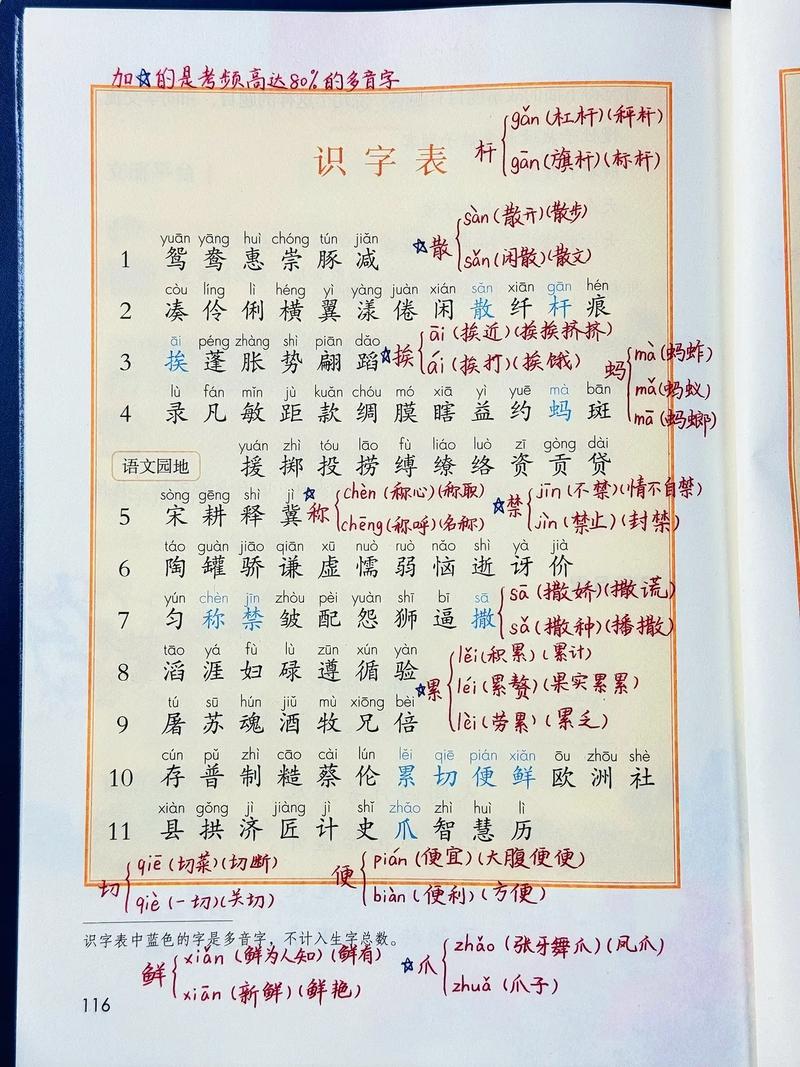 加☆的是考频高达80%的多音字
识字表
杆 gǎn(杠杆)(秤杆)
gān(旗杆)(标杆)
☆散 sàn(散开)(散步)
sǎn(闲散)(散文)
yuān yāng huì chóng tún jiǎn
1 鸳 鸯 惠 崇 豚 减
còu líng lì héng yì yàng juàn xián sǎn xiān gān hén
2 凑 伶 俐 横 翼 漾 倦 闲 散 纤 杆 痕
āi péng zhàng shì piān dǎo
3 挨 蓬 胀 势 翩 蹈
☆挨 āi(挨近)(挨挨挤挤)
ái(挨打)(挨饿)
蚂 mà(蚂蚱)
mǎ(蚂蚁)
mā(蚂螂)
lù fán mǐn jù kuǎn chóu mó xiā yì yuē mà bān
4 录 凡 敏 距 款 绸 膜 瞎 益 约 蚂 斑
yuán zhì tóu lāo fù liáo luò zī gòng dài
语文园地 援 掷 投 捞 缚 缭 络 资 贡 贷
sòng gēng shì jì
5 宋 耕 释 冀
☆称 chèn(称心)(称取)
chēng(称呼)(名称)
☆禁 jīn(不禁)(情不自禁)
jìn(禁止)(封禁)
táo guàn jiāo qiān xū nuò ruò nǎo shì yà jià
6 陶 罐 骄 谦 虚 懦 弱 恼 逝 讶 价
yún chèn jīn zhòu pèi yuàn shī bī sā
7 匀 称 禁 皱 配 怨 狮 逼 撒
sā(撒娇)(撒谎)
sǎ(撒种)(播撒)
tāo yá fù lù zūn xún yàn
8 滔 涯 妇 碌 遵 循 验
☆累 lěi(积累)(累计)
léi(累赘)(果实累累)
lèi(劳累)(累乏)
tú sū hún jiǔ mù xiōng bèi
9 屠 苏 魂 酒 牧 兄 倍
cún pǔ zhì cāo cài lún lěi qiē pián xiǎn ōu zhōu shè
10 存 普 制 糙 蔡 伦 累 切 便 鲜 欧 洲 社
xiàn gǒng jì jiàng jì shǐ zhǎo zhì huì lì
11 县 拱 济 匠 计 史 爪 智 慧 历
切 qiē(切菜)(切断)
qiè(一切)(关切)
便 pián(便宜)(大腹便便)
biàn(便利)(方便)
识字表中蓝色的字是多音字，不计入生字总数。
鲜 xiǎn(鲜为人知)(鲜有)
xiān(新鲜)(鲜艳)
☆爪 zhǎo(张牙舞爪)(凤爪)
zhuǎ(爪子)
116